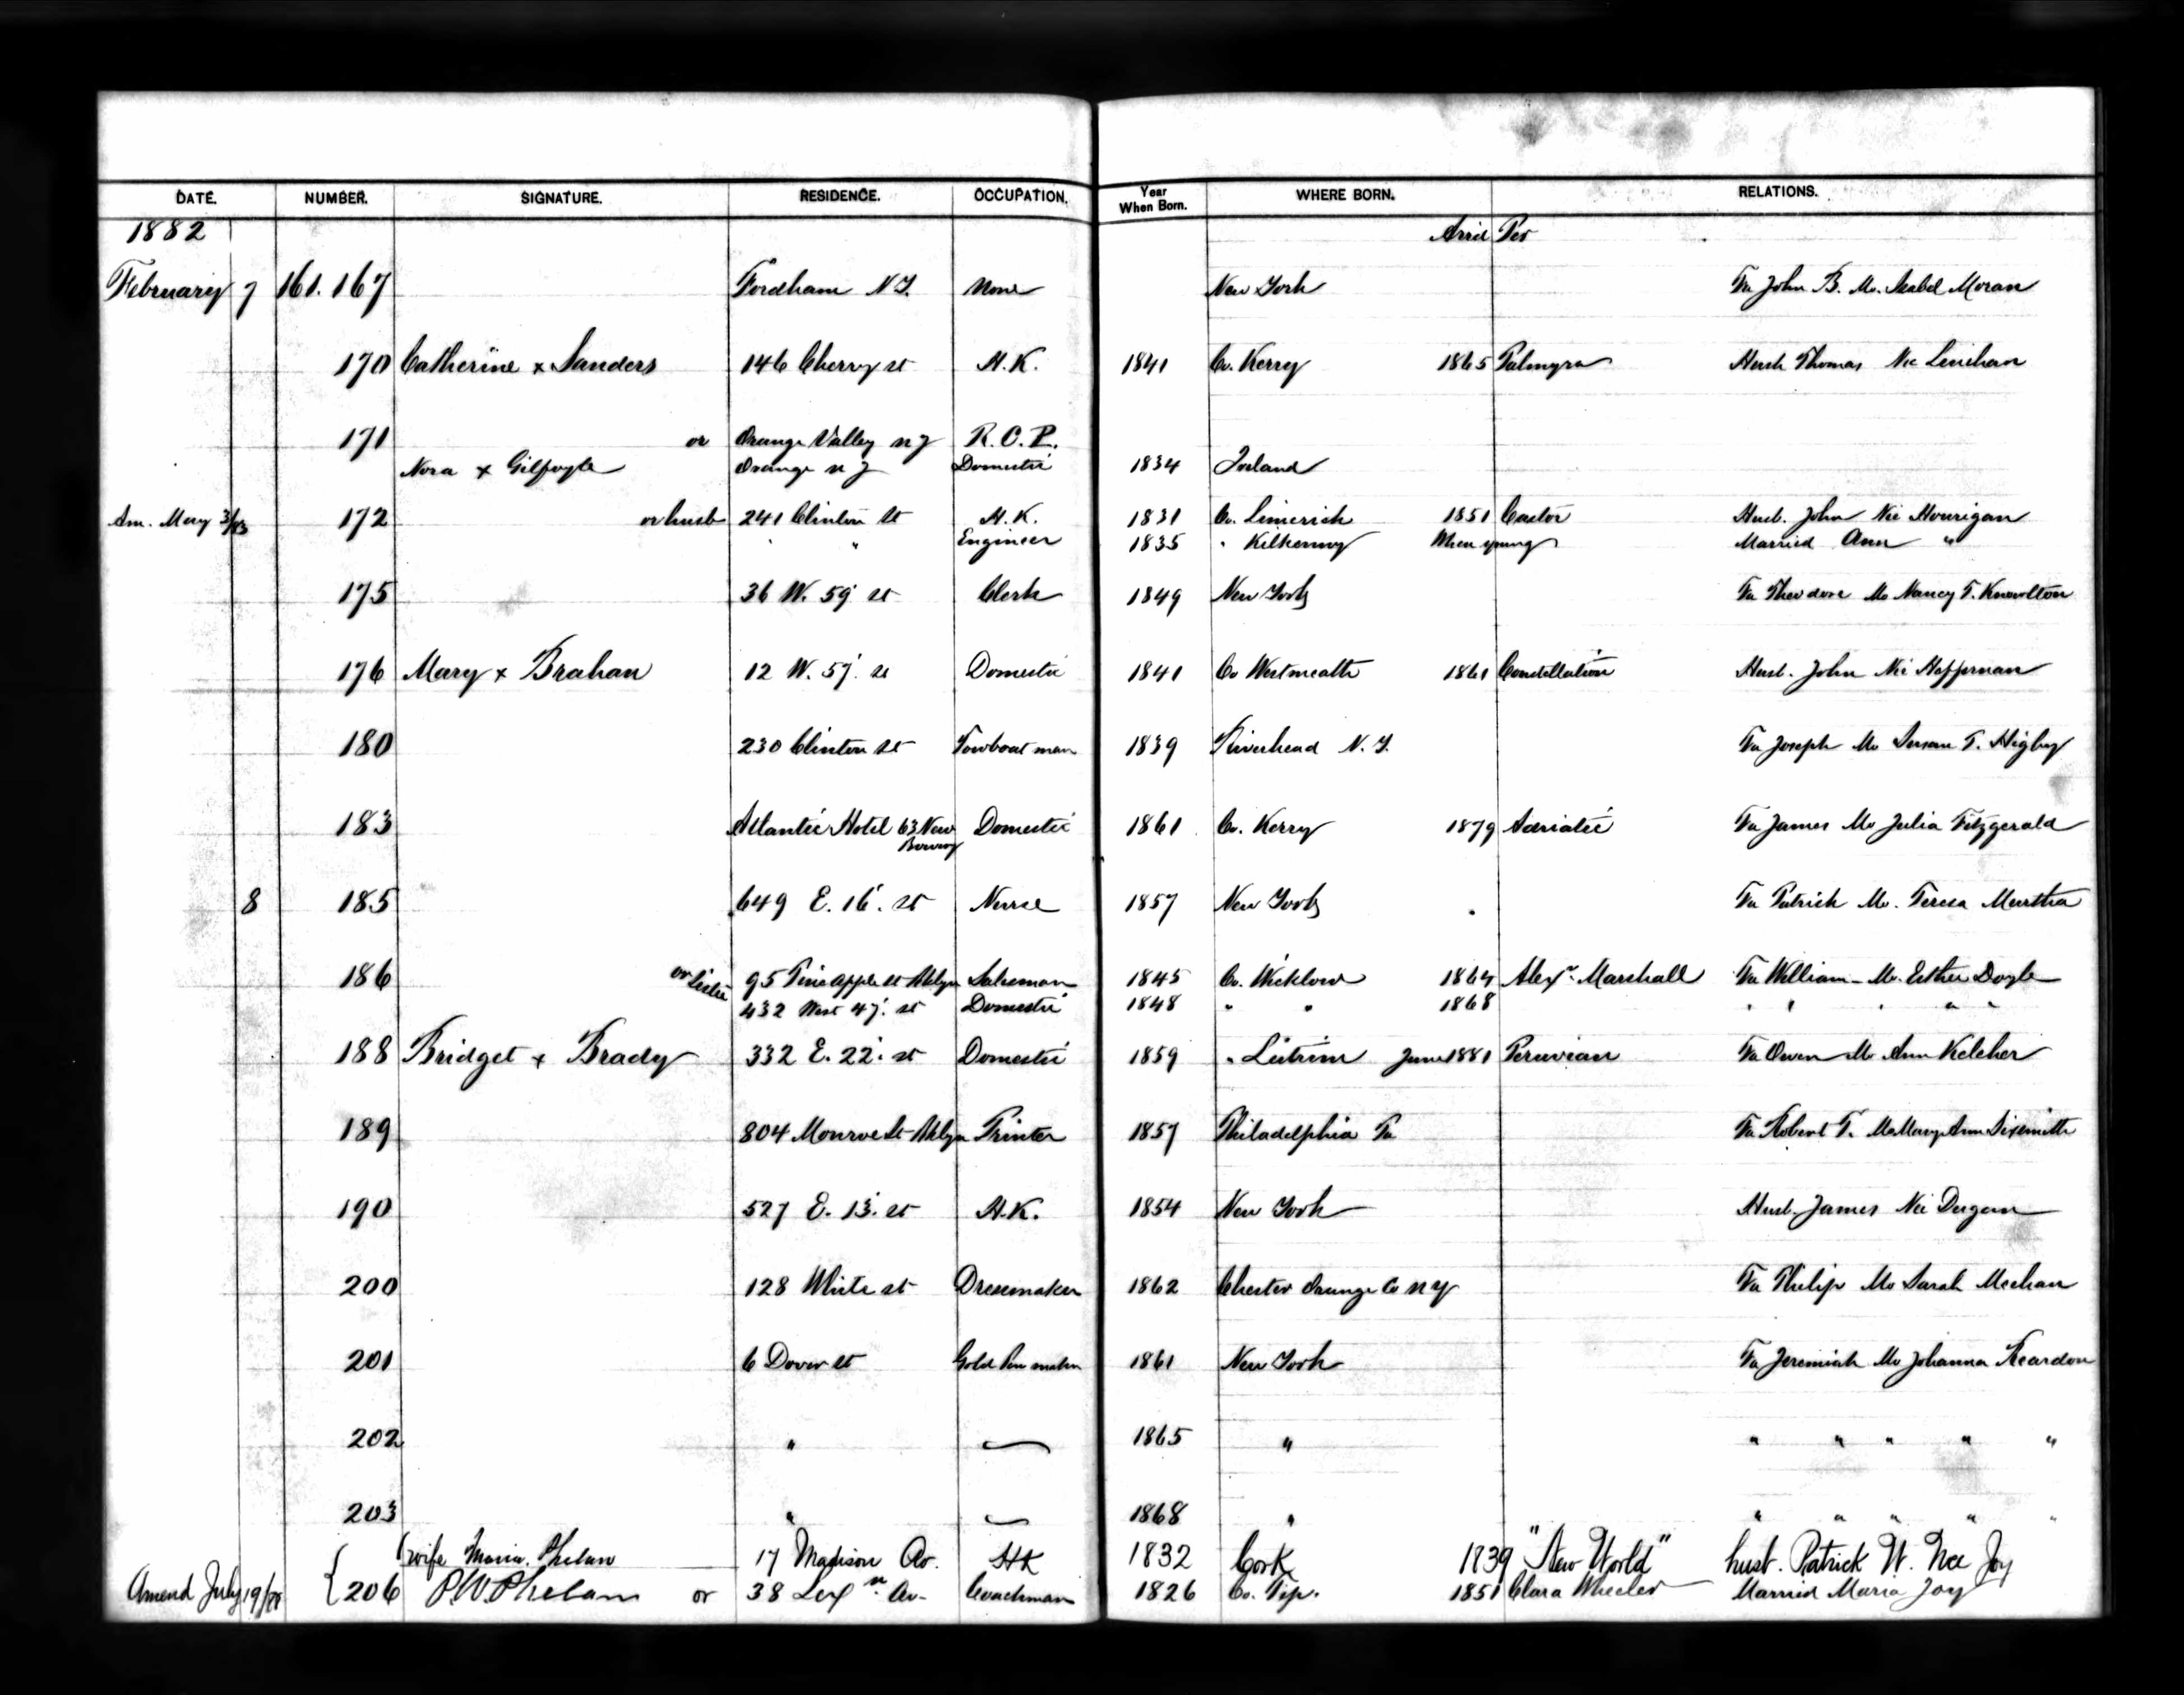 DATE. NUMBER. SIGNATURE. RESIDENCE. OCCUPATION. Year When Born. WHERE BORN. RELATIONS.
1882 Arrd Per
February 7 161.167 Fordham N.Y. None New York Fa John B. Mo. Isabel Moran
170 Catherine x Sanders 146 Cherry st H.K. 1841 Co. Kerry 1865 Palmyra Husb Thomas Nee Linehan
171 or Orange Valley N J R.C.P.
Nora x Gilfoyle Orange N J Domestic 1834 Ireland
Am. May 3/83 172 or husb 241 Clinton St H.K. 1831 Co. Limerick 1851 Castor Husb. John Nee Hourigan
" " Engineer 1835 " Kilkenny When young Married Ann "
175 36 W. 59 st Clerk 1849 New York Fa Theodore Mo Nancy T. Knowlton
176 Mary x Brahan 12 W. 57 st Domestic 1841 Co Westmeath 1861 Constellation Husb. John Nee Heffernan
180 230 Clinton st Towboat man 1839 Riverhead N.Y. Fa Joseph Mo Susan T. Higby
183 Atlantic Hotel 63 New Bowery Domestic 1861 Co. Kerry 1879 Adriatic Fa James Mo Julia Fitzgerald
8 185 649 E. 16 st Nurse 1857 New York Fa Patrick Mo. Teresa Murtha
186 or Sister 95 Pineapple st Bklyn Salesman 1845 Co. Wicklow 1864 Alexr. Marshall Fa William Mo. Esther Doyle
432 West 47 st Domestic 1848 " " 1868 " " " " "
188 Bridget x Brady 332 E. 22 st Domestic 1859 " Leitrim June 1881 Peruvian Fa Owen Mo Ann Keleher
189 804 Monroe St Bklyn Printer 1857 Philadelphia Pa Fa Robert T. Mo Mary Ann Sixsmith
190 527 E. 13 st H.K. 1854 New York Husb. James Nee Dugan
200 128 White st Dressmaker 1862 Chester Orange Co N Y Fa Philip Mo Sarah Meehan
201 6 Dover st Gold Pen maker 1861 New York Fa Jeremiah Mo Johanna Reardon
202 " 1865 " " " " " "
203 " 1868 " " " " " "
(wife Maria Phelan 17 Madison Av. HK 1832 Cork 1839 "New World" husb. Patrick W. Nee Joy
Amend July 19/88 206 P.W. Phelan or 38 Lexn Av Coachman 1826 Co. Tip. 1851 Clara Wheeler Married Maria Joy